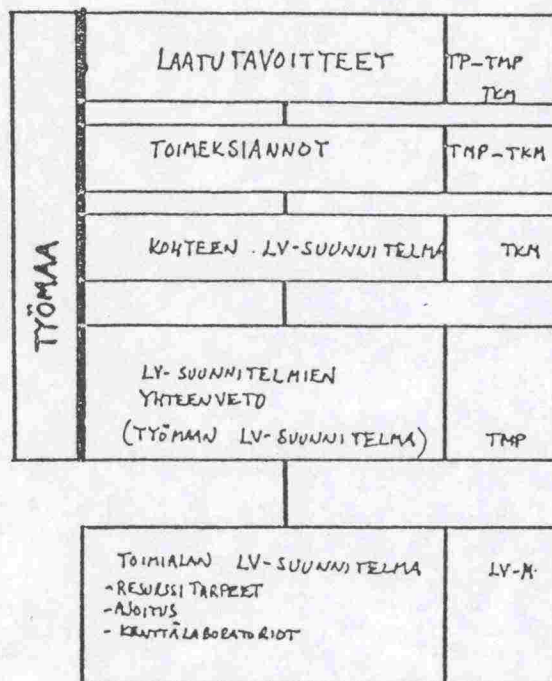 TYÖMAA
LAATUTAVOITTEET
TP-TMP
TKM
TOIMEKSIANNOT
TMP-TKM
KOHTEEN LV-SUUNNITELMA
TKM
LV-SUUNNITELMIEN
YHTEENVETO
(TYÖMAAN LV-SUUNNITELMA)
TMP
TOIMIALAN LV-SUUNNITELMA
LV-M.
-RESURSSITARPEET
-AJOITUS
-KENTTÄLABORATORIOT